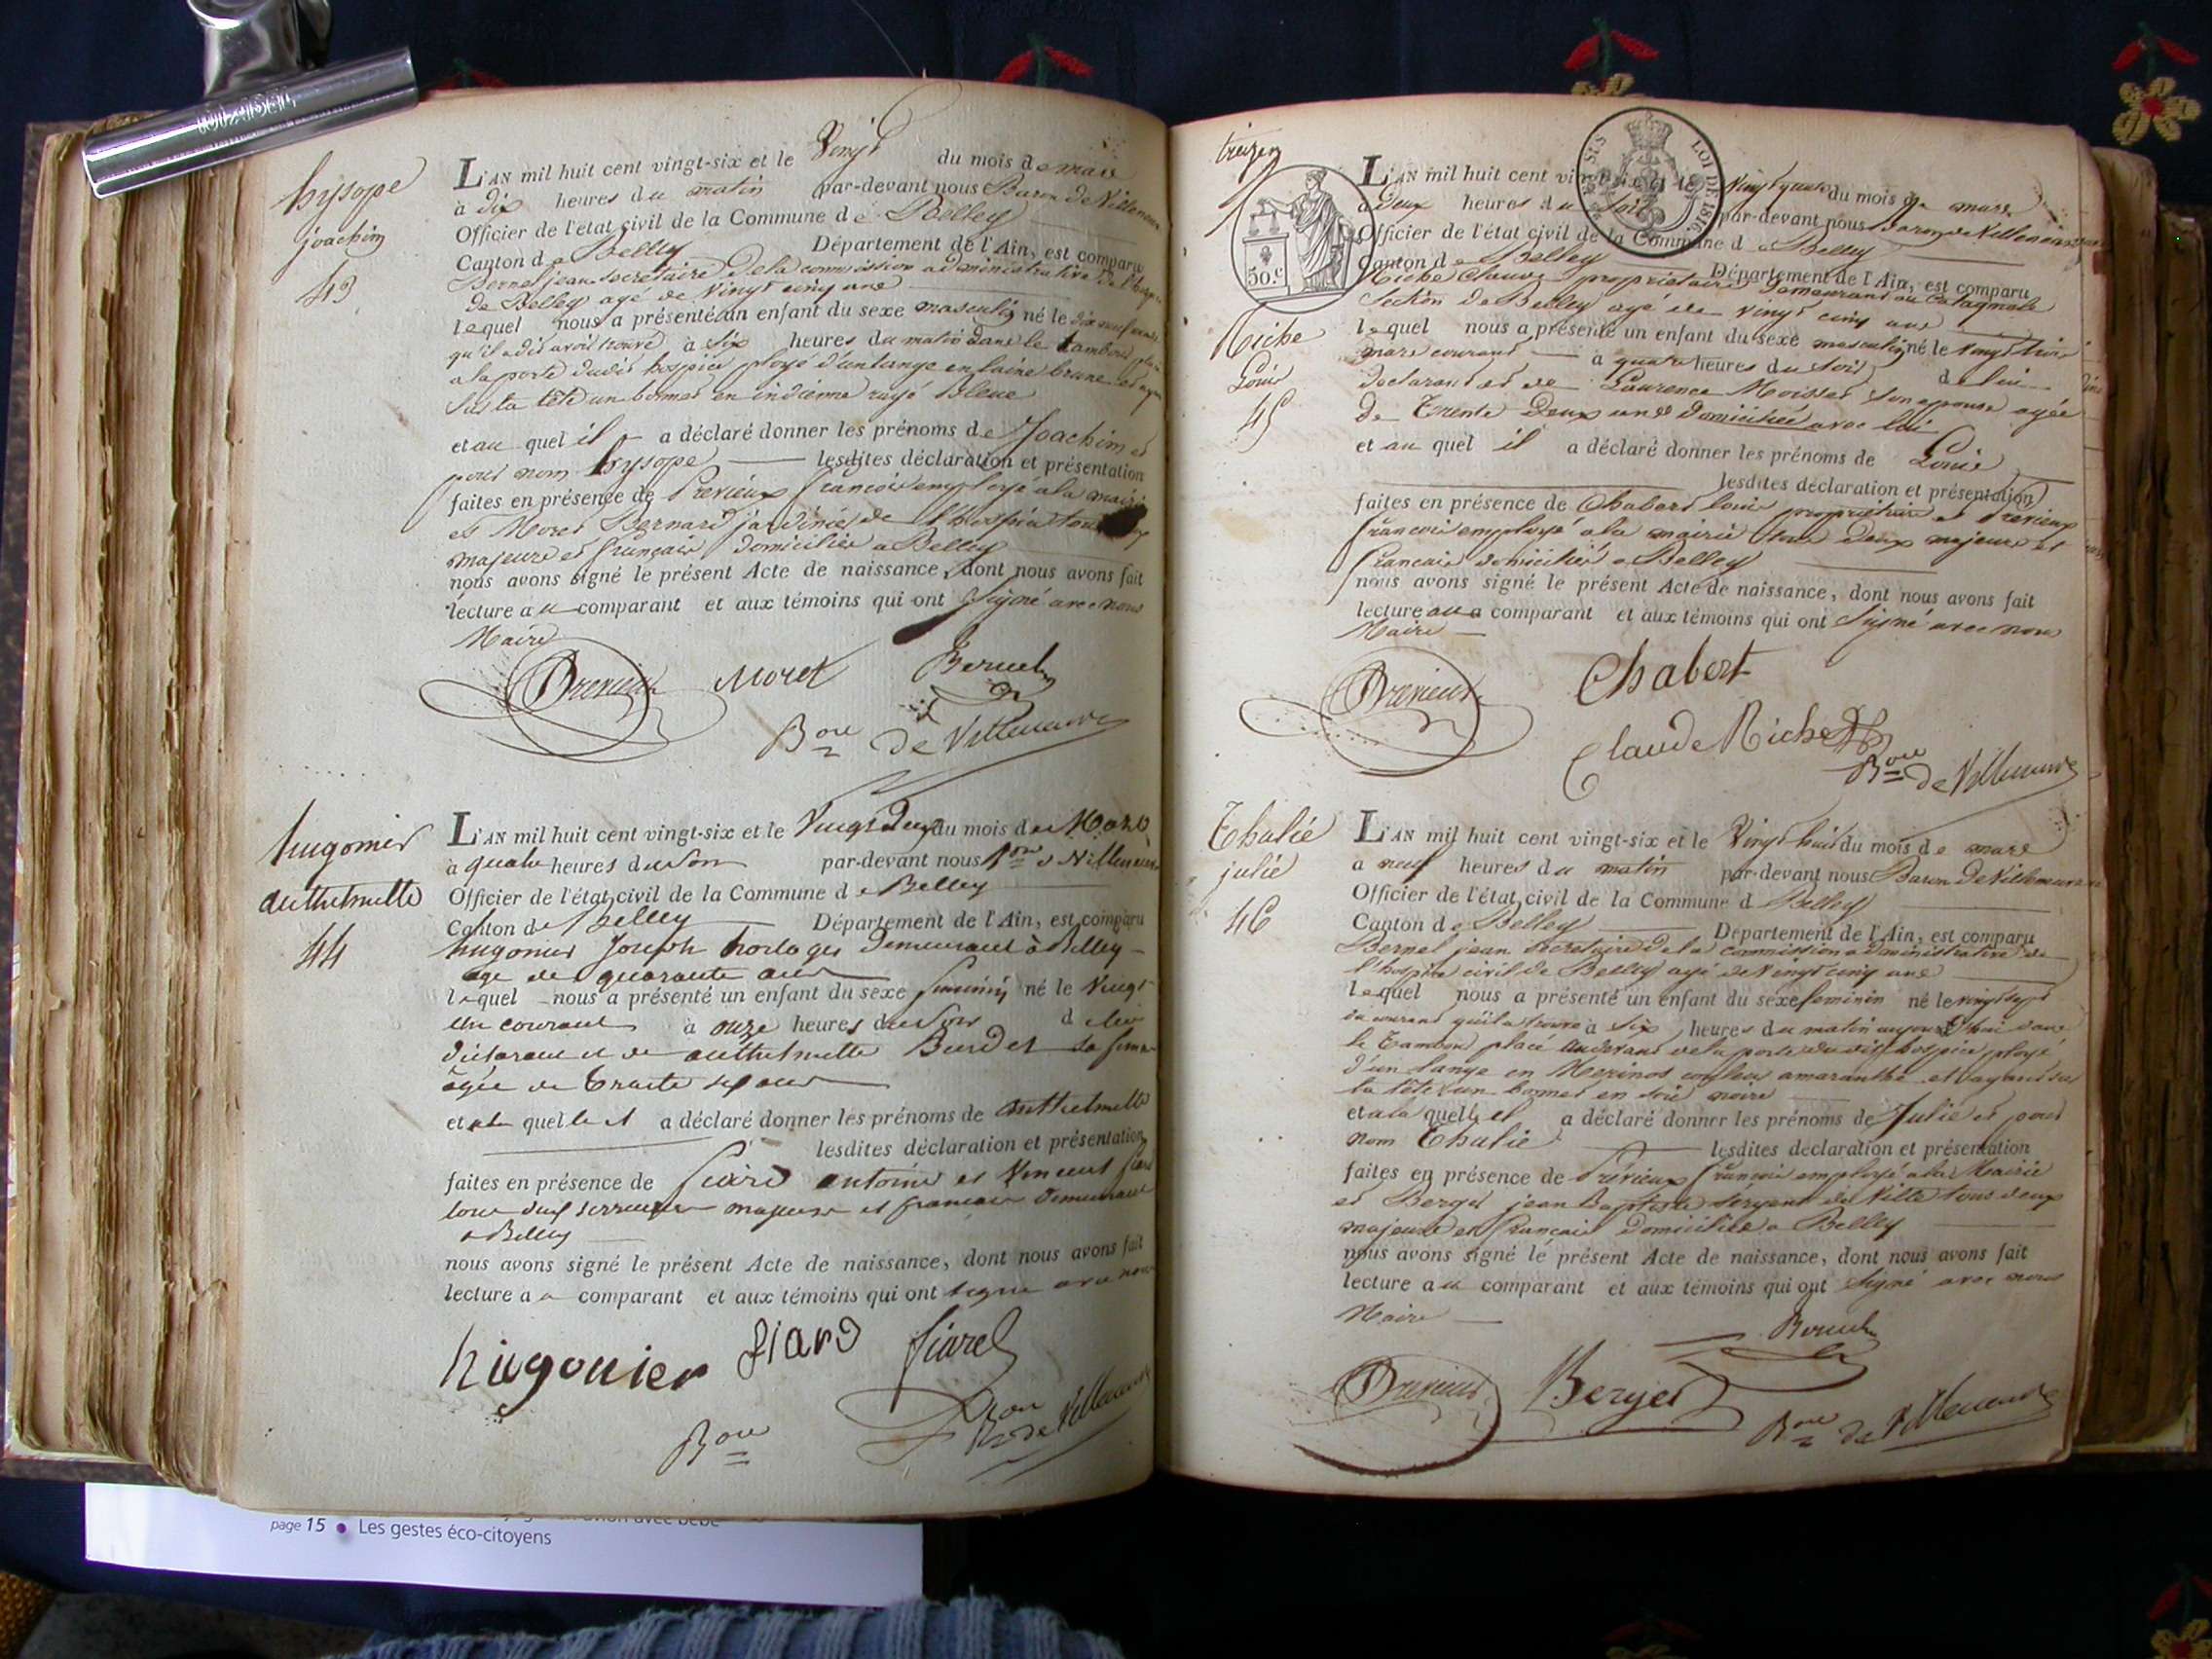 hysope
joachim
43
L'AN mil huit cent vingt-six et le Vingt du mois de mars
à dix heures du matin par-devant nous Baron de Villeneuve
Officier de l'état civil de la Commune de Belley
Canton de Belley Département de l'Ain, est comparu
Bernel jean secretaire de la commission administrative de l'hospice
de Belley agé de vingt cinq ans
lequel nous a présenté un enfant du sexe masculin né le dix neuf
qu'il a dit avoir trouvé à six heures du matin dans le tambour
a la porte dudit hospice ployé d'un lange en laine brune et ayant
sur la tête un bonnet en indienne rayé Bleue
et au quel il a déclaré donner les prénoms de Joachim et
pour nom hysope lesdites déclaration et présentation
faites en présence de Previeux françois employé a la mairie
et Moret Bernard jardinier de l'hospice tous
majeurs et français domiciliés a Belley
nous avons signé le présent Acte de naissance, dont nous avons fait
lecture au comparant et aux témoins qui ont signé avec nous
Maire
Previeux Moret Bernel
Bon de Villeneuve
hugonier
authelmette
44
L'AN mil huit cent vingt-six et le Vingt deux du mois de Mars
à quatre heures du soir par-devant nous Bon de Villeneuve
Officier de l'état civil de la Commune de Belley
Canton de Belley Département de l'Ain, est comparu
hugonier Joseph horloger demeurant à Belley
age de quarante ans
lequel nous a présenté un enfant du sexe feminin né le Vingt
un courant à onze heures du soir de lui
déclarant et de authelmette Burdet sa femme
âgée de trente sept ans
et a la quelle il a déclaré donner les prénoms de authelmette
lesdites déclaration et présentation
faites en présence de fiard antoine et Vincent fiard
tous deux serruriers majeurs et francais demeurant
a Belley
nous avons signé le présent Acte de naissance, dont nous avons fait
lecture au comparant et aux témoins qui ont signé avec nous
hugonier fiard fiard
Bon
Bon de Villeneuve
treize
LOI DE 1816.
50.c
Riche
Louis
45
L'AN mil huit cent vingt-six et le Vingt quatre du mois de mars
à deux heures du soir par-devant nous Baron de Villeneuve
Officier de l'état civil de la Commune de Belley
Canton de Belley Département de l'Ain, est comparu
Riche Claude propriétaire demeurant au
Section de Belley agé de vingt cinq ans
lequel nous a présenté un enfant du sexe masculin né le vingt trois
mars courant à quatre heures du soir de lui
declarant et de Laurence Moisset son epouse agée
de Trente Deux ans domiciliée avec lui
et au quel il a déclaré donner les prénoms de Louis
lesdites déclaration et présentation
faites en présence de Chabert louis propriétaire et Previeux
françois employé a la mairie tous deux majeurs et
français domiciliés a Belley
nous avons signé le présent Acte de naissance, dont nous avons fait
lecture au comparant et aux témoins qui ont signé avec nous
Maire
Previeux Chabert
Claude Riche
Bon de Villeneuve
Thalie
julie
46
L'AN mil huit cent vingt-six et le Vingt huit du mois de mars
à neuf heures du matin par-devant nous Baron de Villeneuve
Officier de l'état civil de la Commune d Belley
Canton de Belley Département de l'Ain, est comparu
Bernel jean secretaire de la commission administrative de
l'hospice civil de Belley agé de vingt cinq ans
lequel nous a présenté un enfant du sexe feminin né le vingt sept
du courant qu'il a trouvé à six heures du matin aujourd'hui dans
le Tambour placé audevant de la porte dudit hospice ployé
d'un lange en Merinos couleur amaranthe et ayant sur
la tête un bonnet en soie noire
et a la quelle il a déclaré donner les prénoms de Julie et pour
nom Thalie lesdites déclaration et présentation
faites en présence de Prévieux françois employé a la Mairie
et Berger jean Baptiste sergent de Ville tous deux
majeurs et français domiciliés a Belley
nous avons signé le présent Acte de naissance, dont nous avons fait
lecture au comparant et aux témoins qui ont signé avec nous
Maire
Bernel
Previeux Berger
Bon de Villeneuve
page 15 • Les gestes éco-citoyens